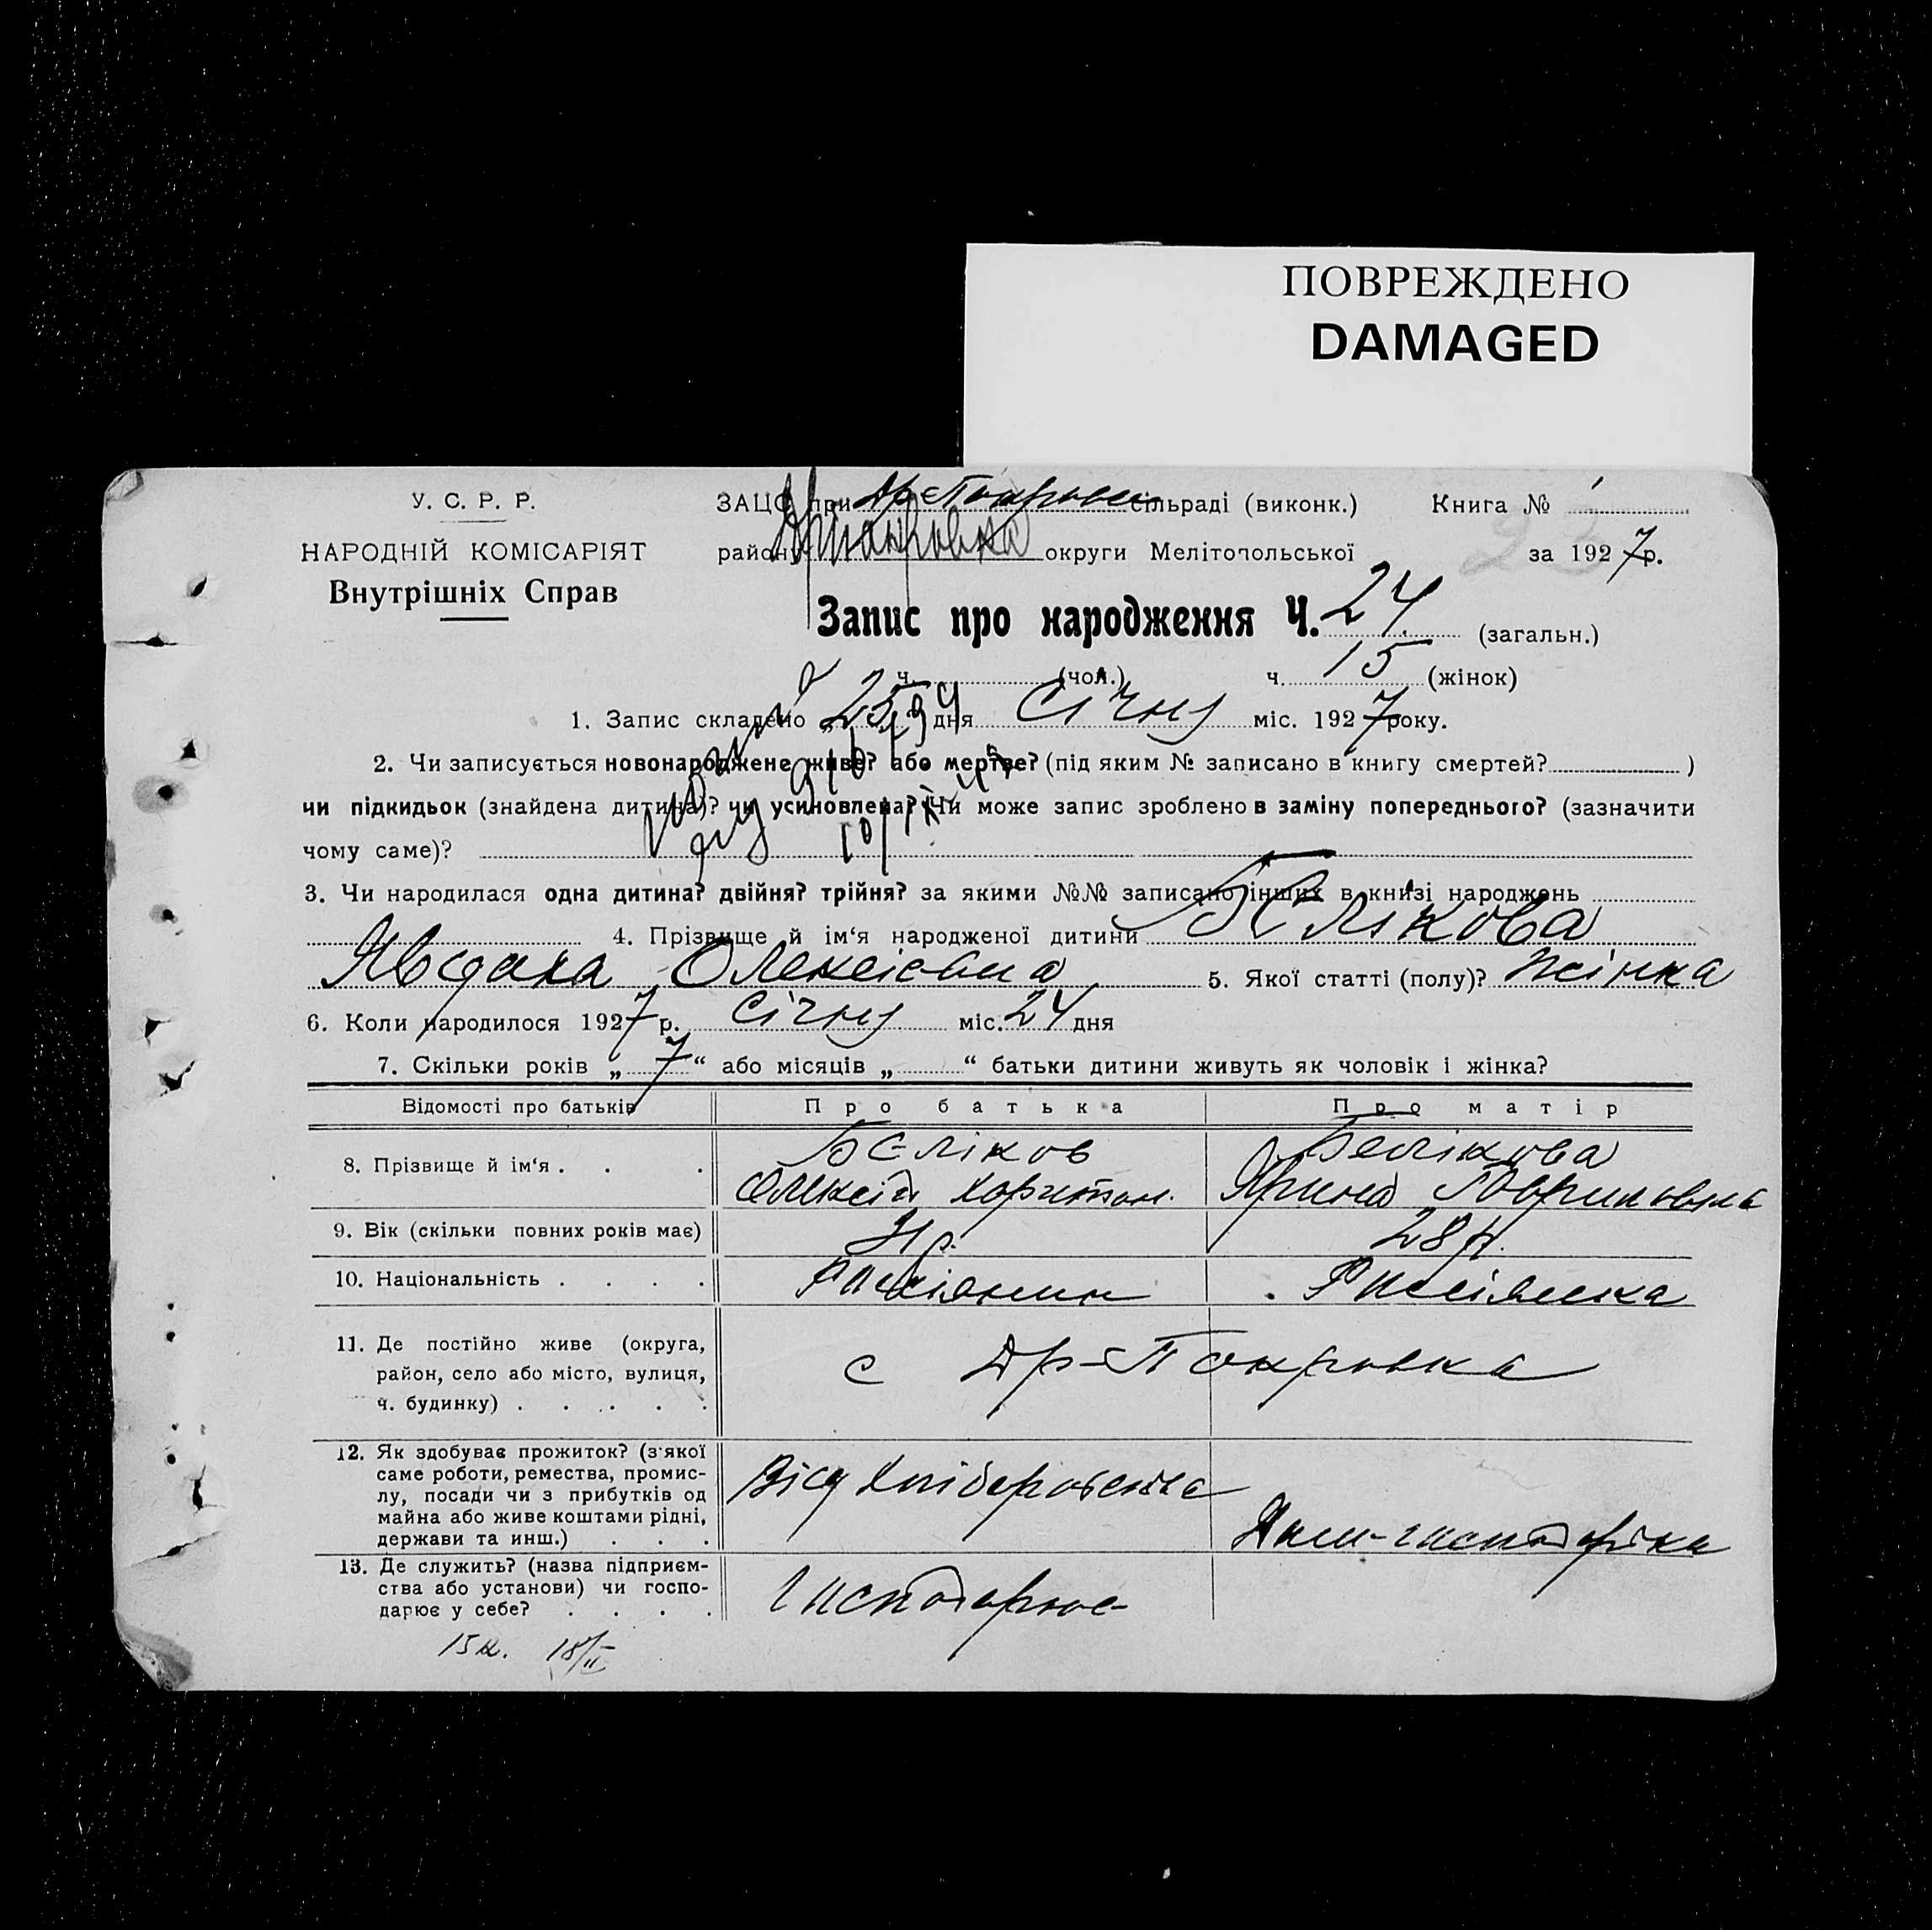 ПОВРЕЖДЕНО
DAMAGED
У. С. Р. Р.
НАРОДНІЙ КОМІСАРІЯТ
Внутрішніх Справ
ЗАЦС при Др-Покровск сільраді (виконк.) Книга № 1
району округи Мелітопольської за 1927 р.
Запис про народження Ч. 24 (загальн.)
ч. (чол.) ч. 15 (жінок)
1. Запис складено „25“ дня Січня міс. 1927 року.
2. Чи записується новонароджене живе? або мертве? (під яким № записано в книгу смертей? )
чи підкидьок (знайдена дитина)? чи усиновлена? Чи може запис зроблено в заміну попереднього? (зазначити
чому саме)?
3. Чи народилася одна дитина? двійня? трійня? за якими №№ записано інших в книзі народжень
4. Прізвище й ім‘я народженої дитини Бєлікова
Явдоха Олексієвна 5. Якої статті (полу)? Жінка
6. Коли народилося 1927 р. Січня міс. 24 дня
7. Скільки років „7“ або місяців „ “ батьки дитини живуть як чоловік і жінка?
Відомості про батьків Про батька Про матір
8. Прізвище й ім‘я . . . Бєліков Белікова
Олексій Харитон. Ярина Гавриловна
9. Вік (скільки повних років має) 28 р.
10. Національність . . . . Росіянин Росіянка
11. Де постійно живе (округа,
район, село або місто, вулиця,
ч. будинку) . . . . .
с Др-Покровка
12. Як здобуває прожиток? (з‘якої
саме роботи, ремества, промис-
лу, посади чи з прибутків од
майна або живе коштами рідні,
держави та инш.) . . .
Від Хліборобства
Дом-господарка
13. Де служить? (назва підприєм-
ства або установи) чи госпо-
дарює у себе? . . . .
Господарює
15 к. 18/II